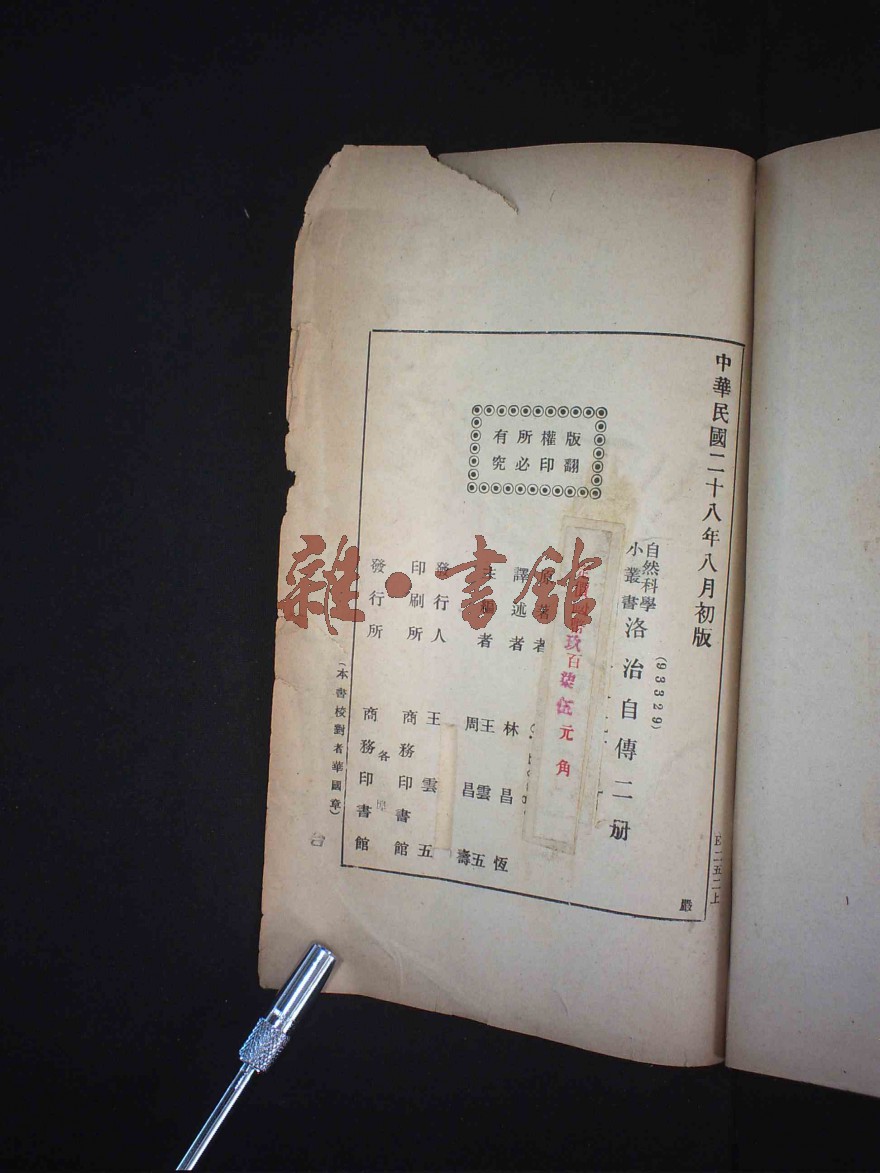 中華民國二十八年八月初版
(93329)
自然科學
小叢書
洛治自傳二册
玖百柒伍元 角
原著者
譯述者 林昌恆
主編者 王雲五
周昌壽
發行人 王雲五
印刷所 商務印書館
發行所 商務印書館
各
(本書校對者華國章)
版權所有
翻印必究
二五二上
嚴
雜·書館